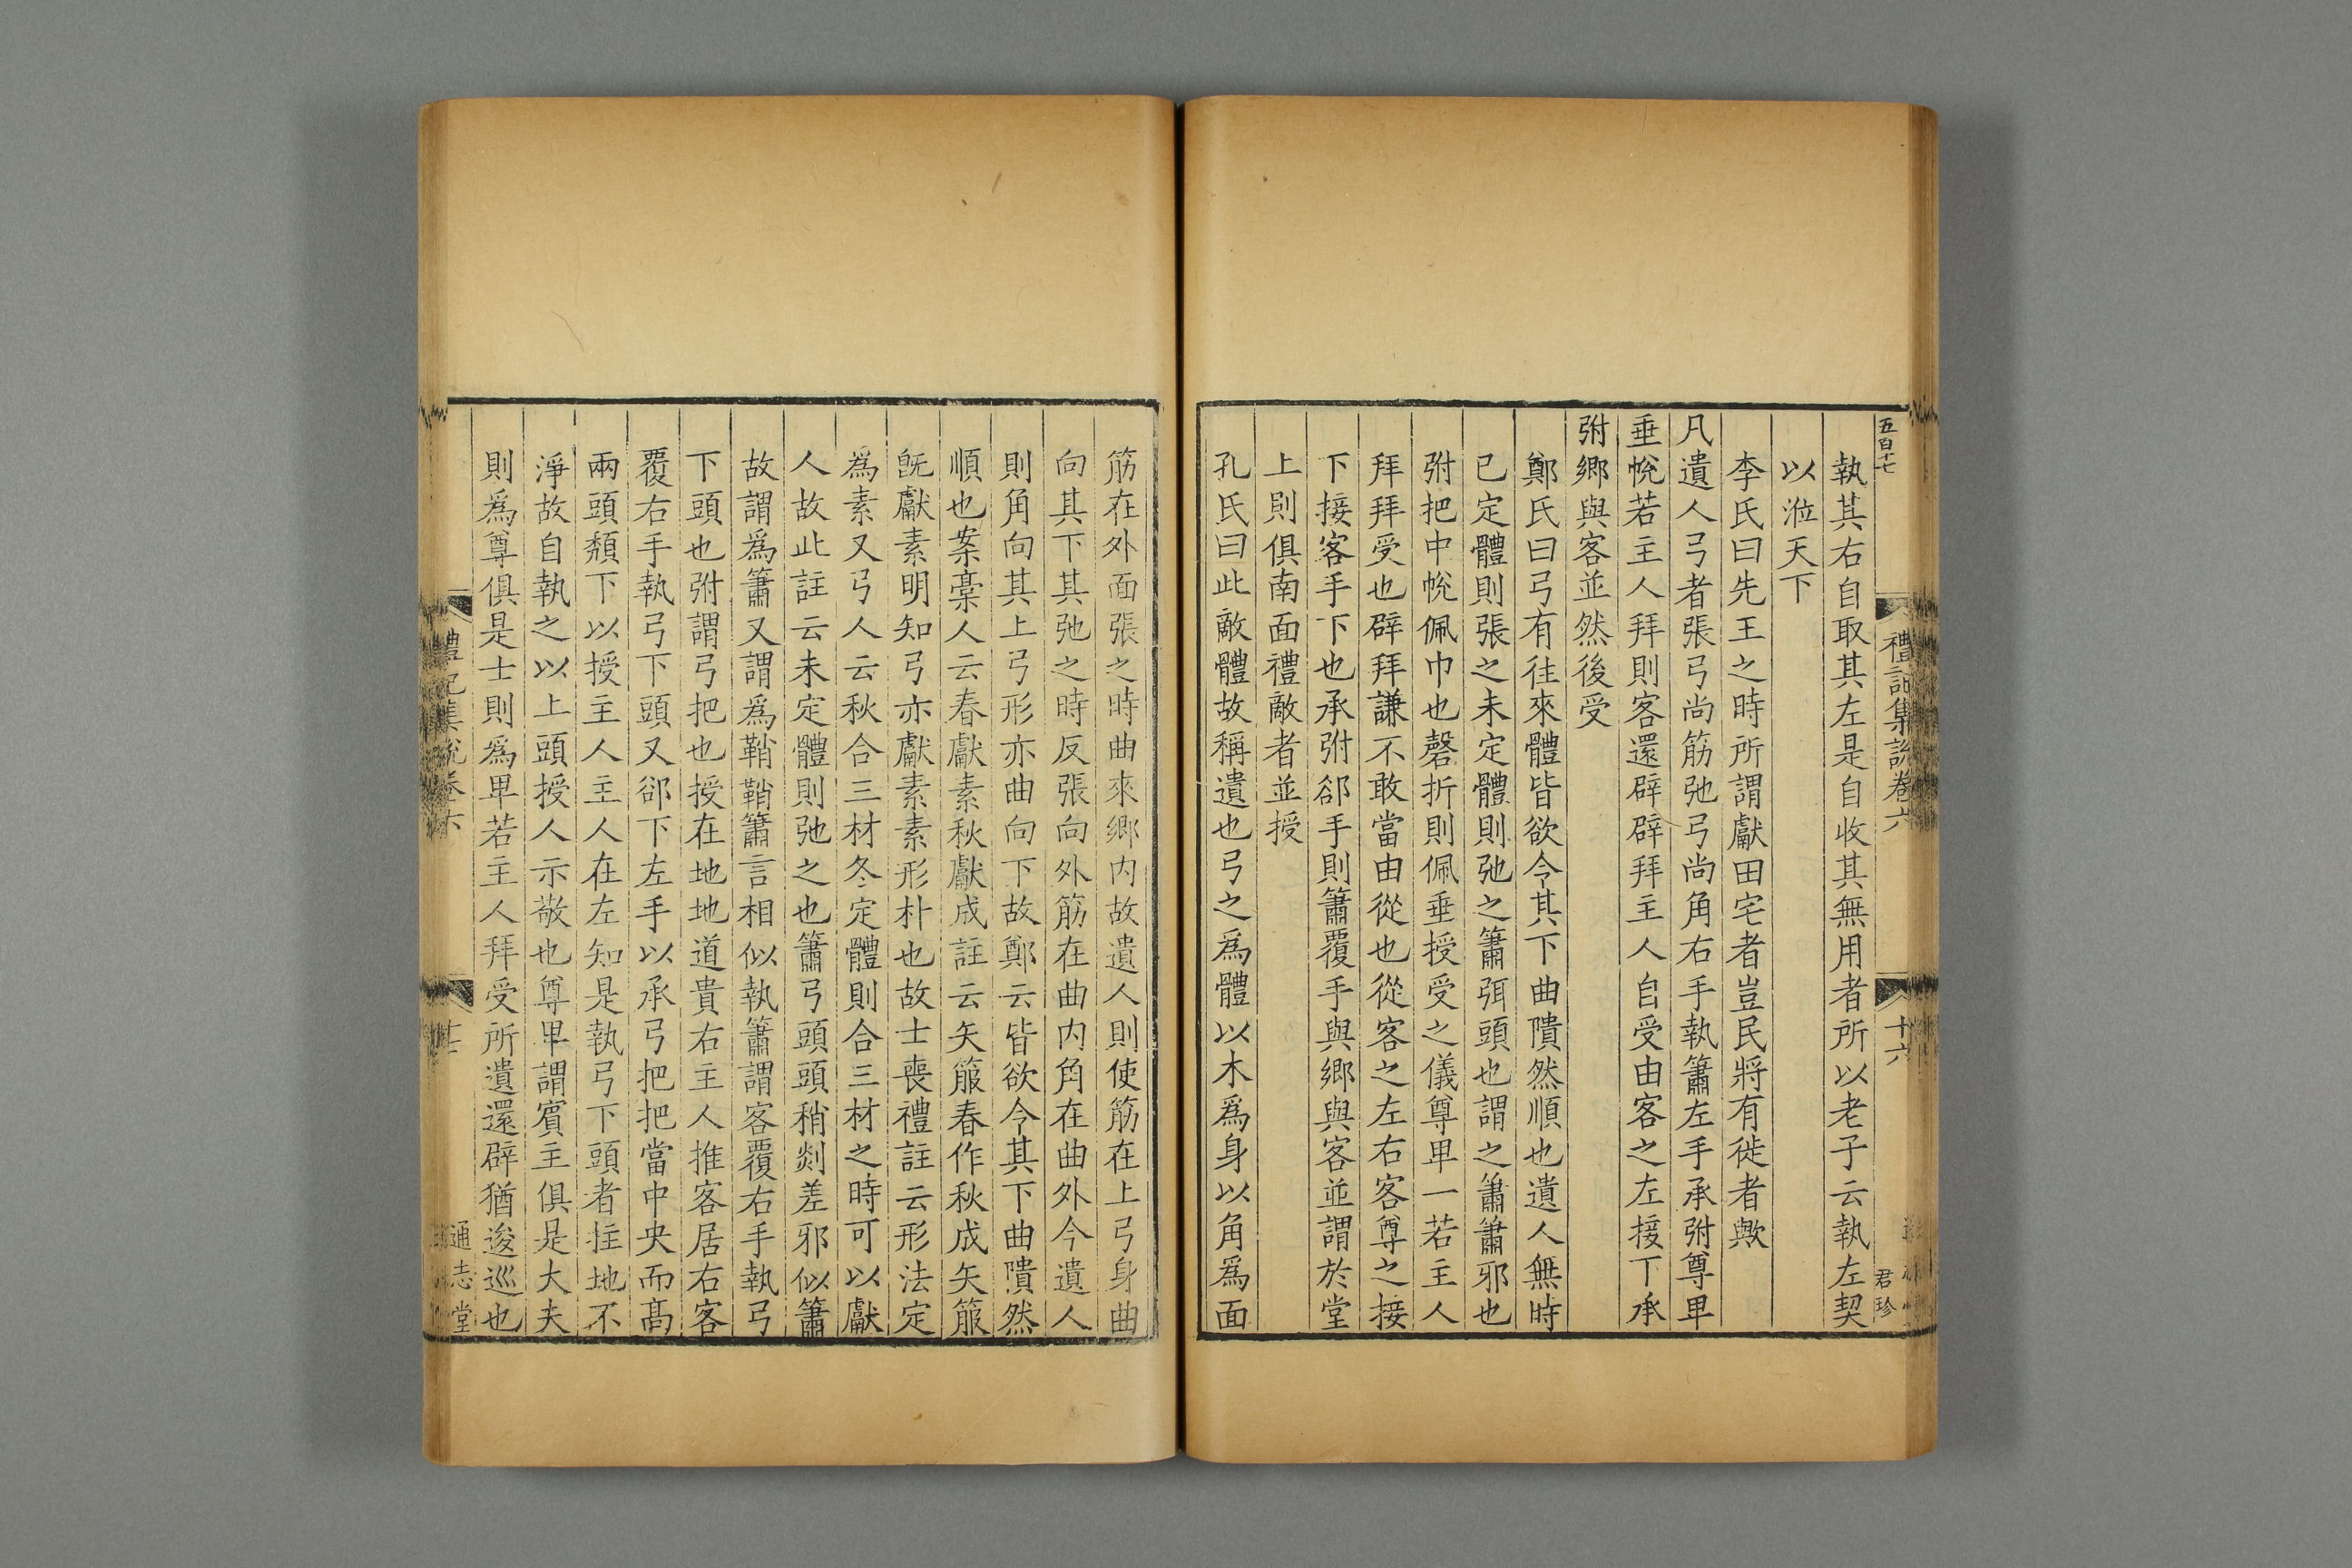 五百十七
禮記集說卷六
十六
君珍
執其右自取其左是自收其無用者所以老子云執左契
以涖天下
李氏曰先王之時所謂獻田宅者豈民將有徙者歟
凡遺人弓者張弓尚筋弛弓尚角右手執簫左手承弣尊卑
垂帨若主人拜則客還辟辟拜主人自受由客之左接下承
弣鄉與客並然後受
鄭氏曰弓有往來體皆欲令其下曲隤然順也遺人無時
已定體則張之未定體則弛之簫弭頭也謂之簫簫邪也
弣把中帨佩巾也磬折則佩垂授受之儀尊卑一若主人
拜拜受也辟拜謙不敢當由從也從客之左右客尊之接
下接客手下也承弣郤手則簫覆手與鄉與客並謂於堂
上則俱南面禮敵者並授
孔氏曰此敵體故稱遺也弓之為體以木為身以角為面
筋在外面張之時曲來鄉内故遺人則使筋在上弓身曲
向其下其弛之時反張向外筋在曲内角在曲外今遺人
則角向其上弓形亦曲向下故鄭云皆欲令其下曲隤然
順也案稾人云春獻素秋獻成註云矢箙春作秋成矢箙
旣獻素明知弓亦獻素素形朴也故士喪禮註云形法定
為素又弓人云秋合三材冬定體則合三材之時可以獻
人故此註云未定體則弛之也簫弓頭頭稍剡差邪似簫
故謂爲簫又謂爲鞘鞘簫言相似執簫謂客覆右手執弓
下頭也弣謂弓把也授在地地道貴右主人推客居右客
覆右手執弓下頭又郤下左手以承弓把把當中央而髙
兩頭頽下以授主人主人在左知是執弓下頭者拄地不
淨故自執之以上頭授人示敬也尊卑謂賓主俱是大夫
則爲尊俱是士則爲卑若主人拜受所遺還辟猶逡巡也
禮記集說卷六
通志堂